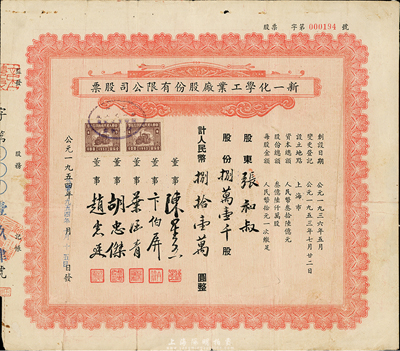 股票 字第 000194 號
新一化學工業廠股份有限公司股票
創設日期 公元一九三六年五月
變更登記 公元一九五三年七月廿二日
設立地點 上海市
資本總額 人民幣叁拾陸億元
股份總額 叁億陸仟萬股
每股金額 人民幣拾元一次繳足
股東 張和叔
股份 捌萬壹千股
計人民幣 捌拾壹萬 圓整
董事 陳
董事 卞伯屏
董事 葉
董事 胡忠傑
董事 趙
公元一九五四年 月 日發